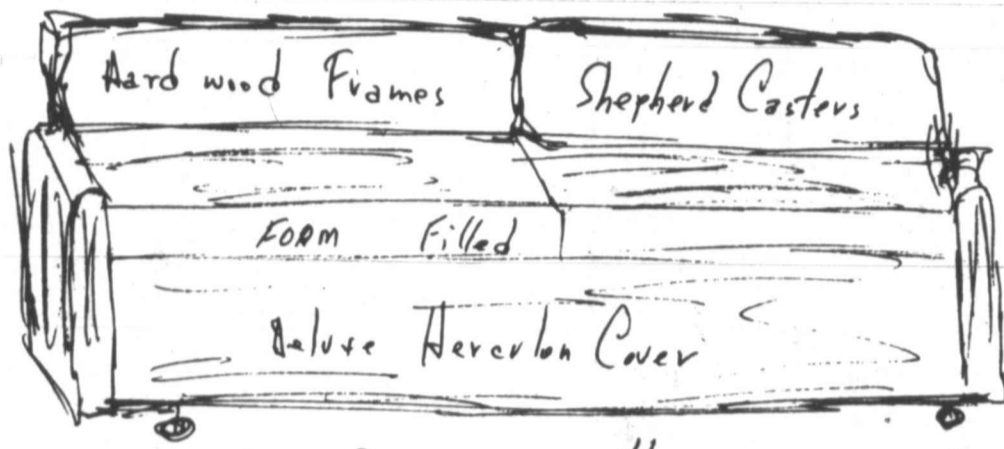 Hard wood Frames
Shepherd Casters
FOAM Filled
Deluxe Herculon Cover